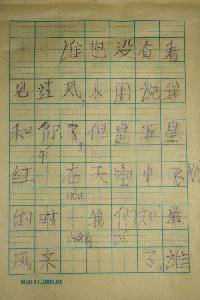 谁也没有看
见过风,不用说我
和你了,但是五星
qí
红 在天空中飞
hou
的时 我们知道
风来 了。谁